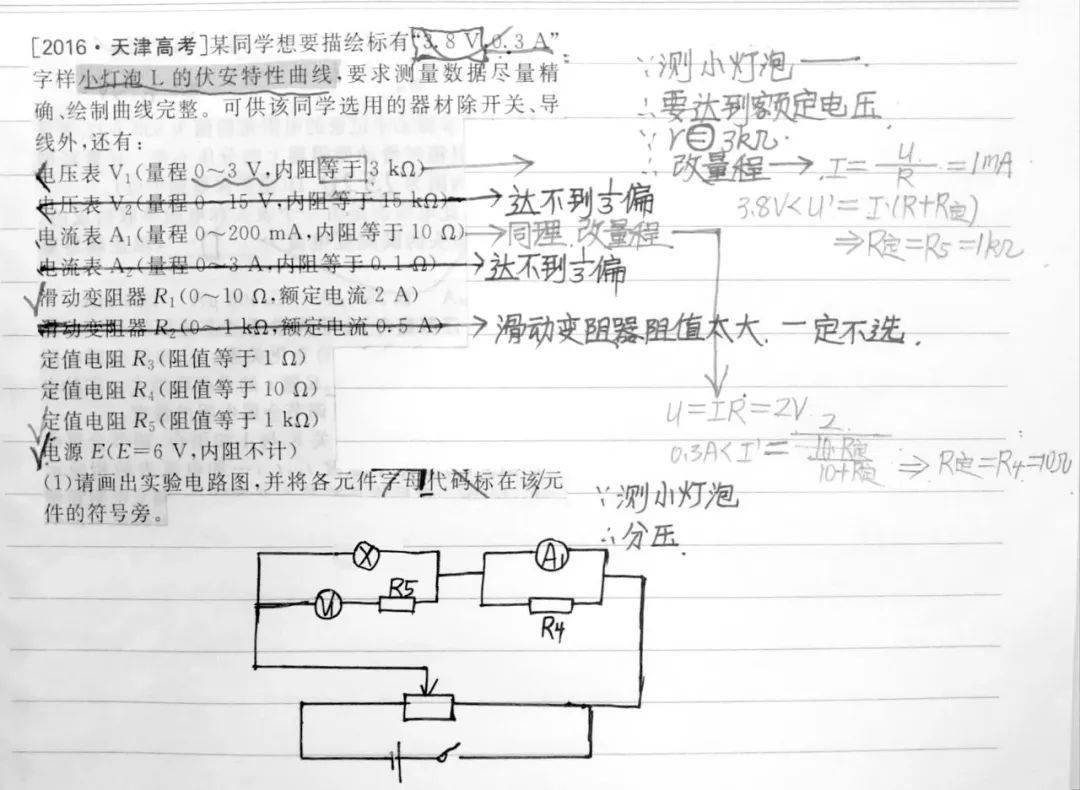 [2016·天津高考]某同学想要描绘标有“3.8 V,0.3 A”
字样小灯泡 L 的伏安特性曲线,要求测量数据尽量精
确、绘制曲线完整。可供该同学选用的器材除开关、导
线外,还有:
电压表 V₁(量程 0～3 V,内阻等于 3 kΩ)
电压表 V₂(量程 0～15 V,内阻等于 15 kΩ)
→达不到⅓偏
电流表 A₁(量程 0～200 mA,内阻等于 10 Ω)
→同理.改量程
电流表 A₂(量程 0～3 A,内阻等于 0.1 Ω)
→达不到⅓偏
滑动变阻器 R₁(0～10 Ω,额定电流 2 A)
滑动变阻器 R₂(0～1 kΩ,额定电流 0.5 A)
→滑动变阻器阻值太大.一定不选.
定值电阻 R₃(阻值等于 1 Ω)
定值电阻 R₄(阻值等于 10 Ω)
定值电阻 R₅(阻值等于 1 kΩ)
电源 E(E=6 V,内阻不计)
(1)请画出实验电路图,并将各元件字母代码标在该元
件的符号旁。
∵测小灯泡——.
∴要达到额定电压.
∵r=3kΩ.
∴改量程→.I=U/R=1mA
3.8V<U'=I·(R+R定)
⇒R定=R5=1kΩ
U=IR=2V.
0.3A<I'=2/(10·R定/(10+R定)) ⇒R定=R4=10Ω
∵测小灯泡
∴分压.
X
A₁
V
R5
R4